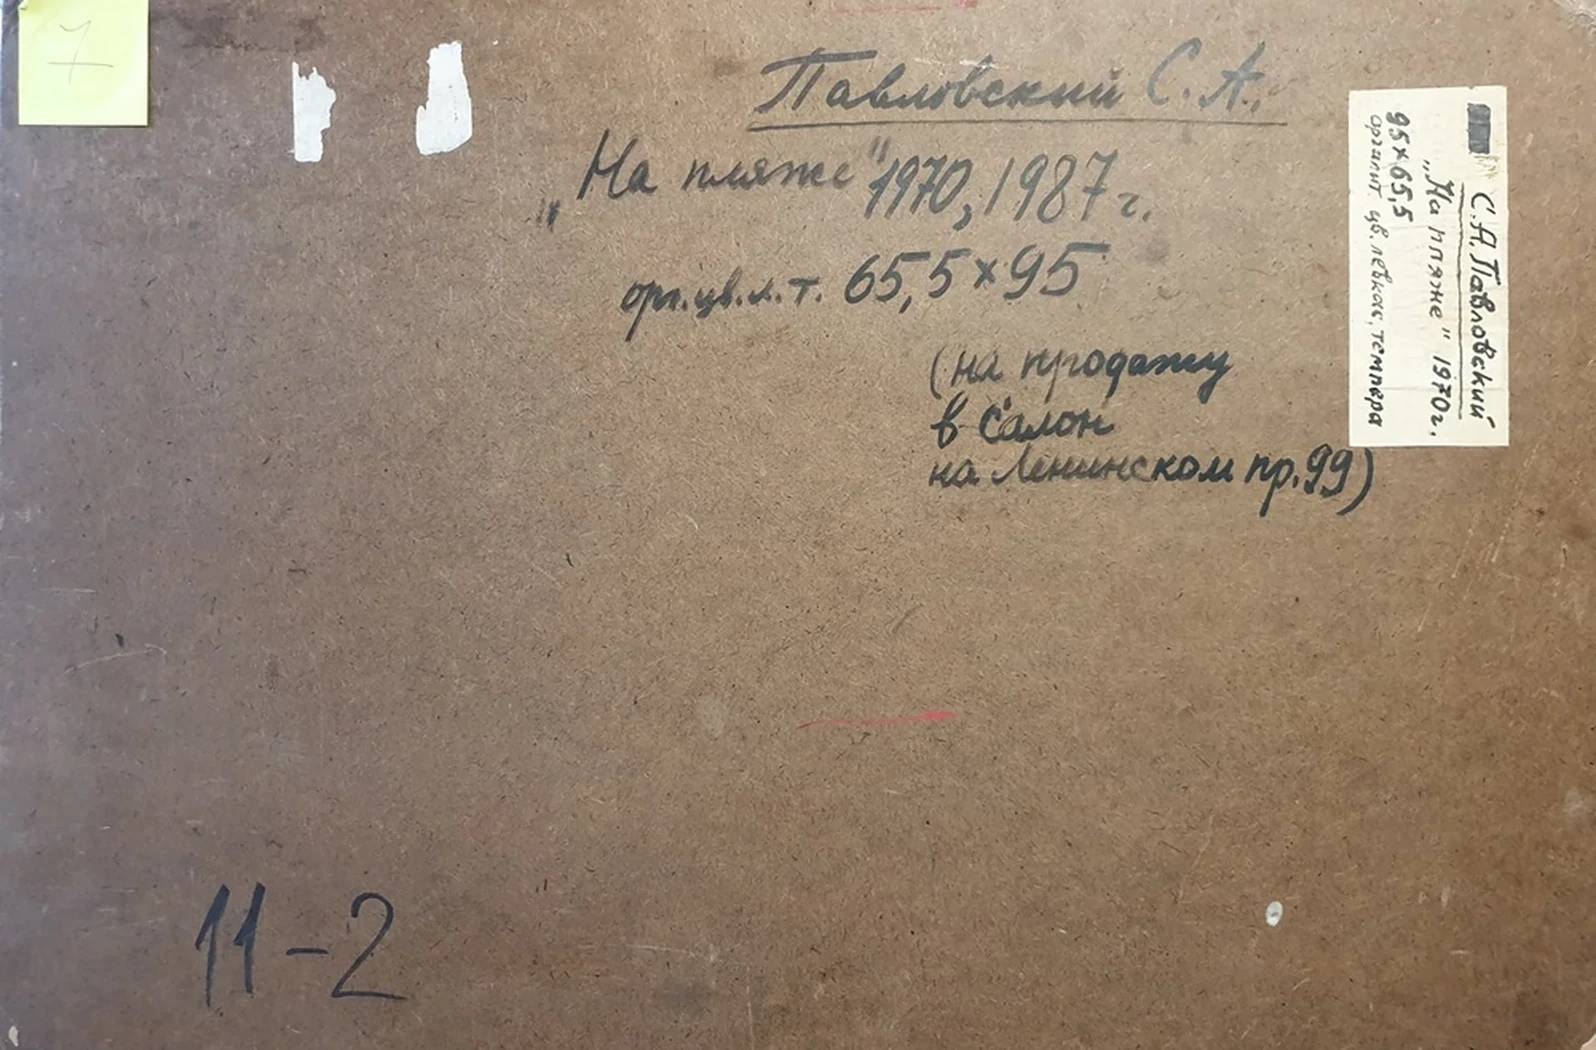 7
Павловский С. А.
„На пляже" 1970, 1987 г.
орг. цв. л. т. 65,5 x 95
(на продажу
в Салон
на Ленинском пр. 99)
С. А. Павловский
„На пляже" 1970 г.
95 x 65,5
оргалит цв. левкас, темпера
11-2